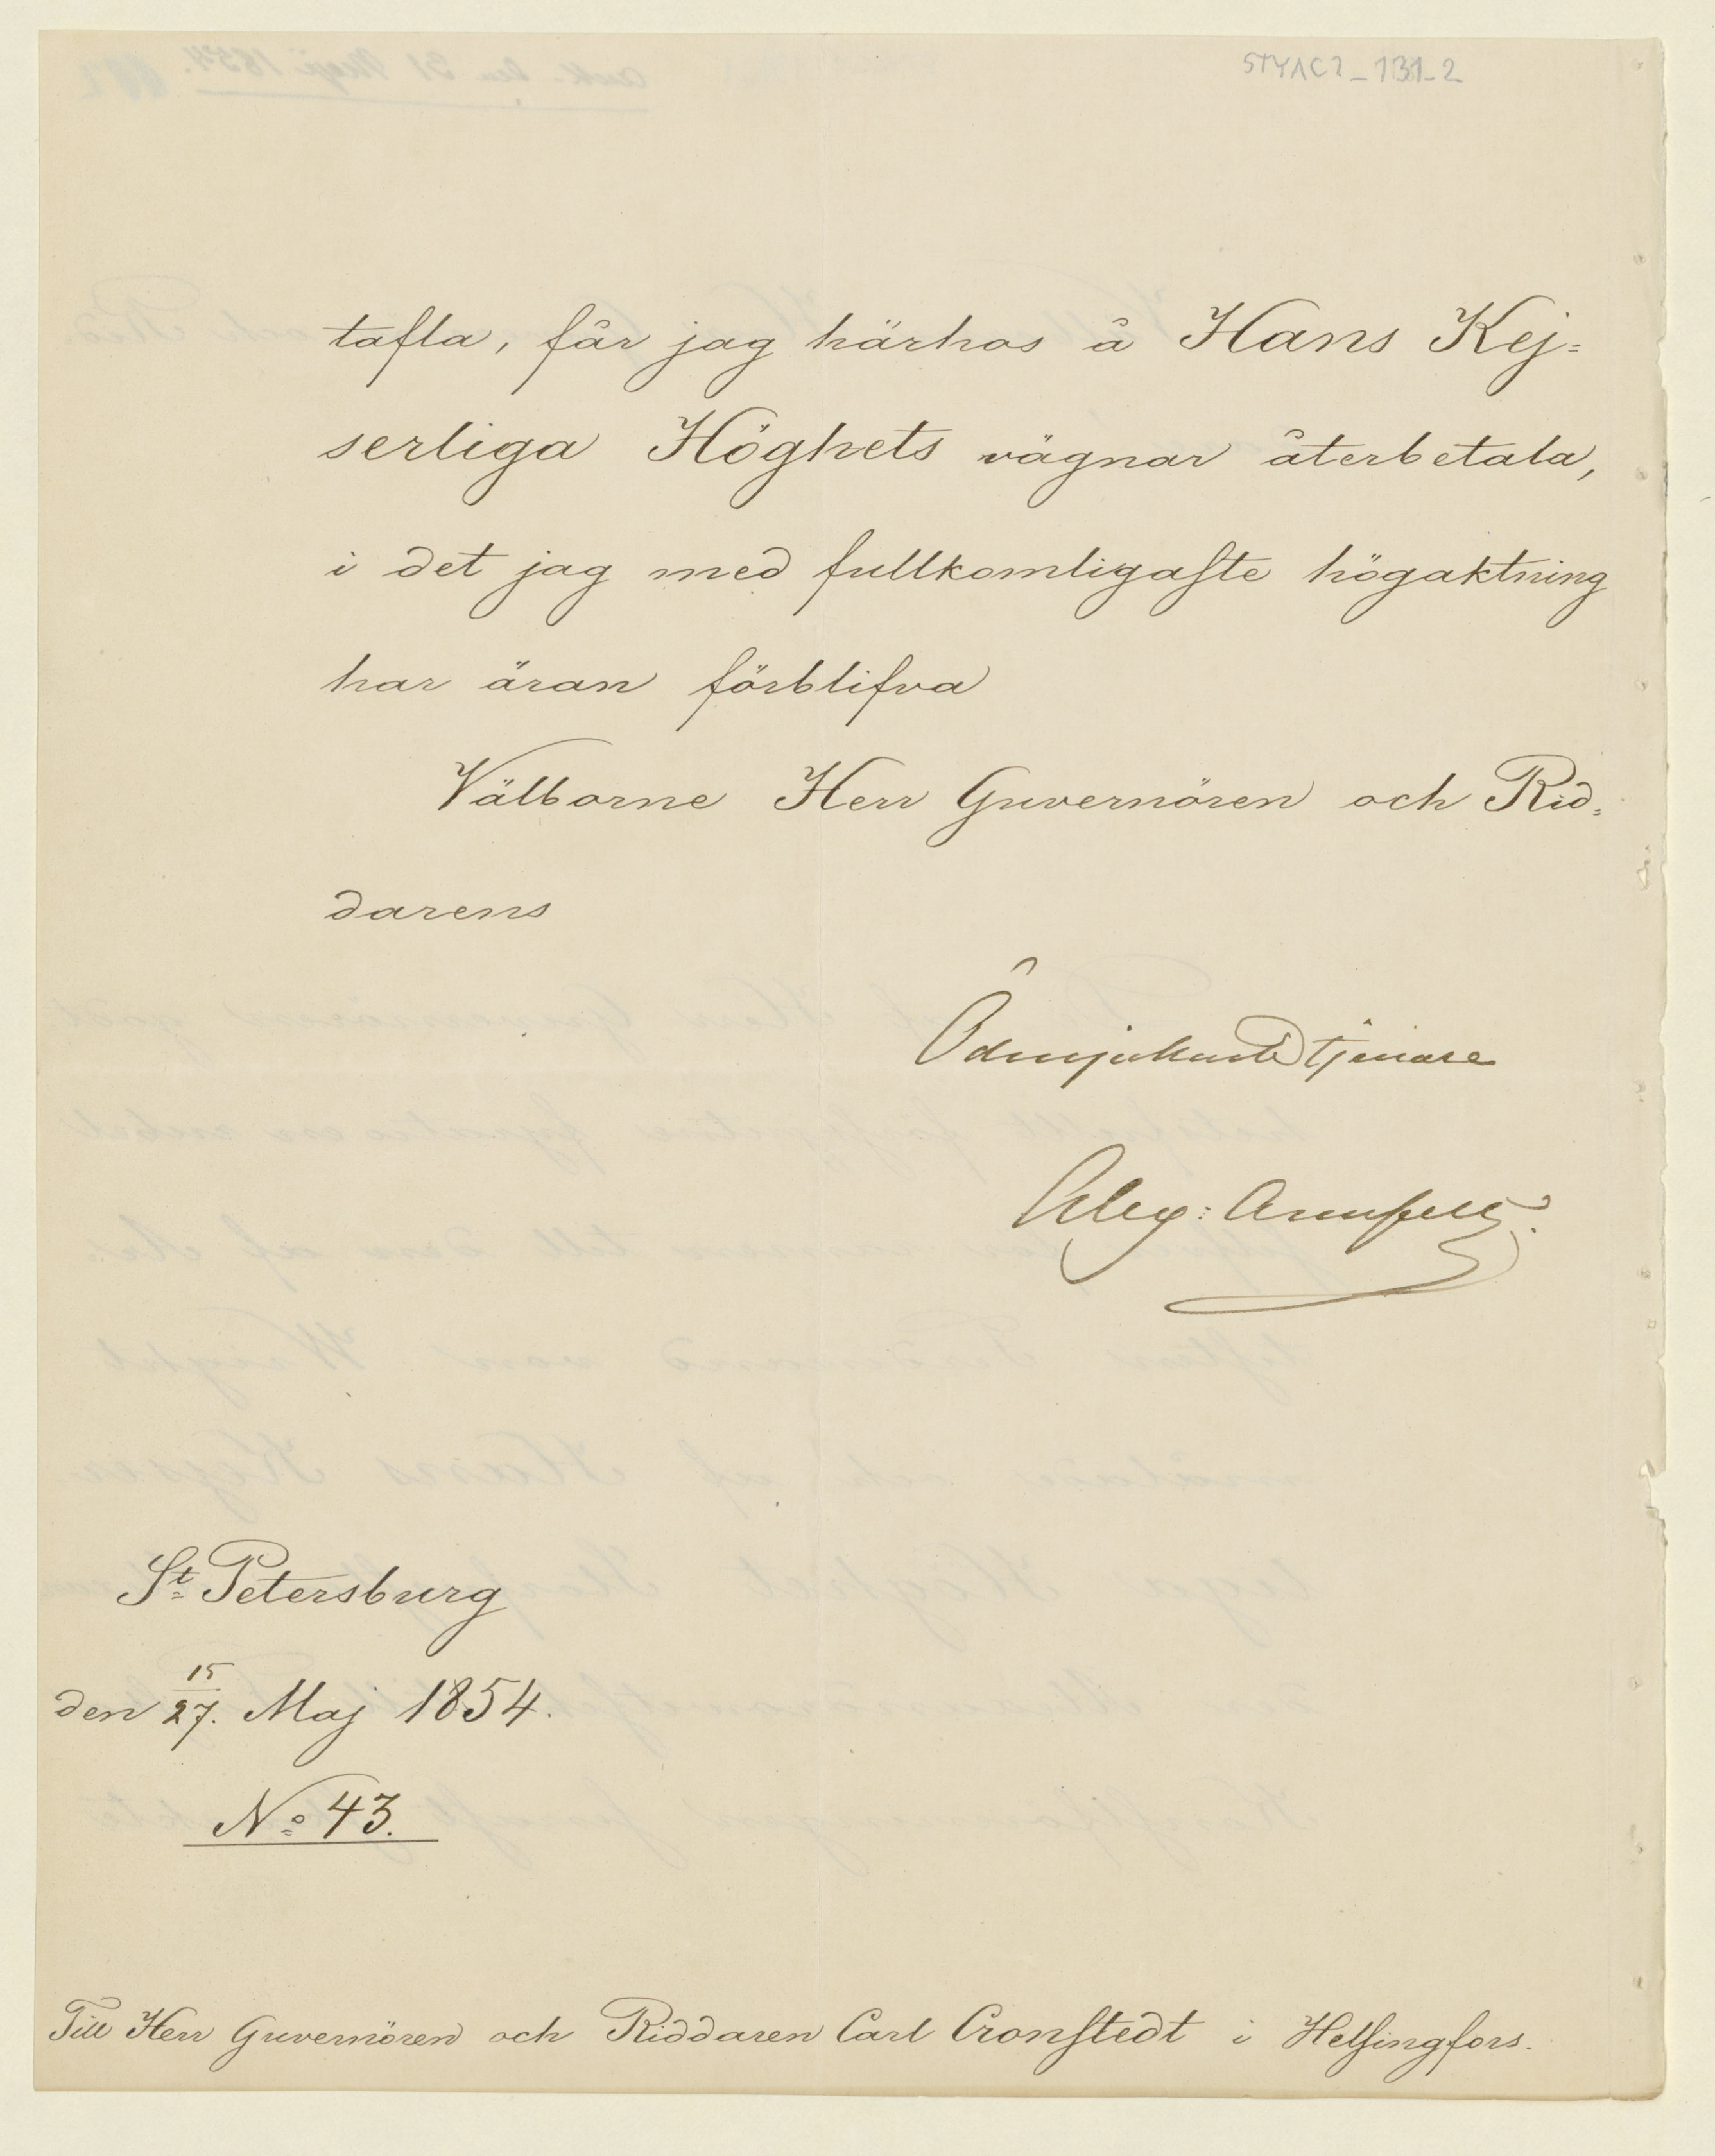 STYAC2_131_2
tafla, får jag härhos å Hans Kej=
serliga Höghets vägnar återbetala,
i det jag med fullkomligaste högaktning
har äran förblifva
Välborne Herr Guvernören och Rid=
darens
Ödmjukaste tjenare
Alex: Armfelt.
St Petersburg
den 15/27. Maj 1854.
No 43.
Till Herr Guvernören och Riddaren Carl Cronstedt i Helsingfors.